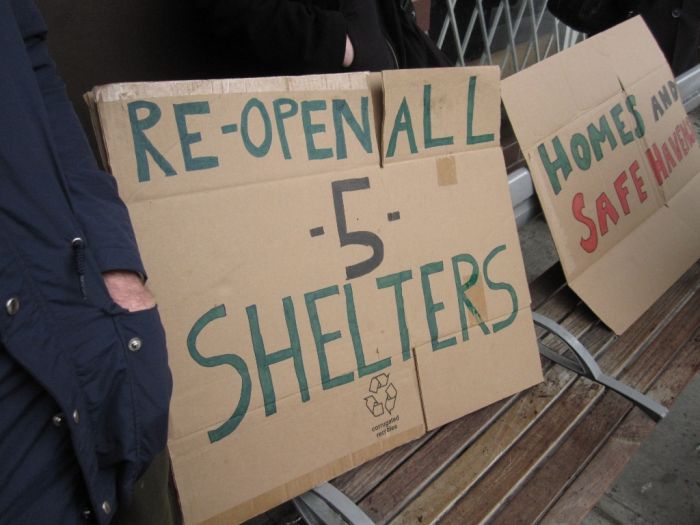 RE-OPEN ALL
-5-
SHELTERS
corrugated
recycles
HOMES AND
SAFE HAVENS